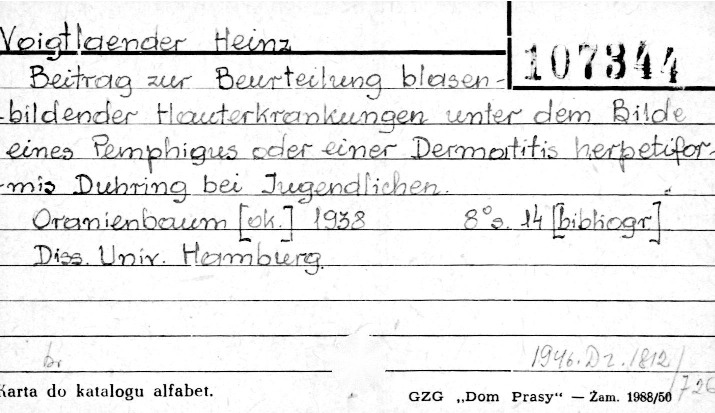 Voigtlaender Heinz
107344
Beitrag zur Beurteilung blasen-
-bildender Hauterkrankungen unter dem Bilde
eines Pemphigus oder einer Dermatitis herpetifor-
-mis Duhring bei Jugendlichen.
Oranienbaum [ok.] 1938 8° s. 14 [bibliogr]
Diss. Univ. Hamburg.
br. 1946. Dz. 1812/726
Karta do katalogu alfabet. GZG „Dom Prasy" — Zam. 1988/50